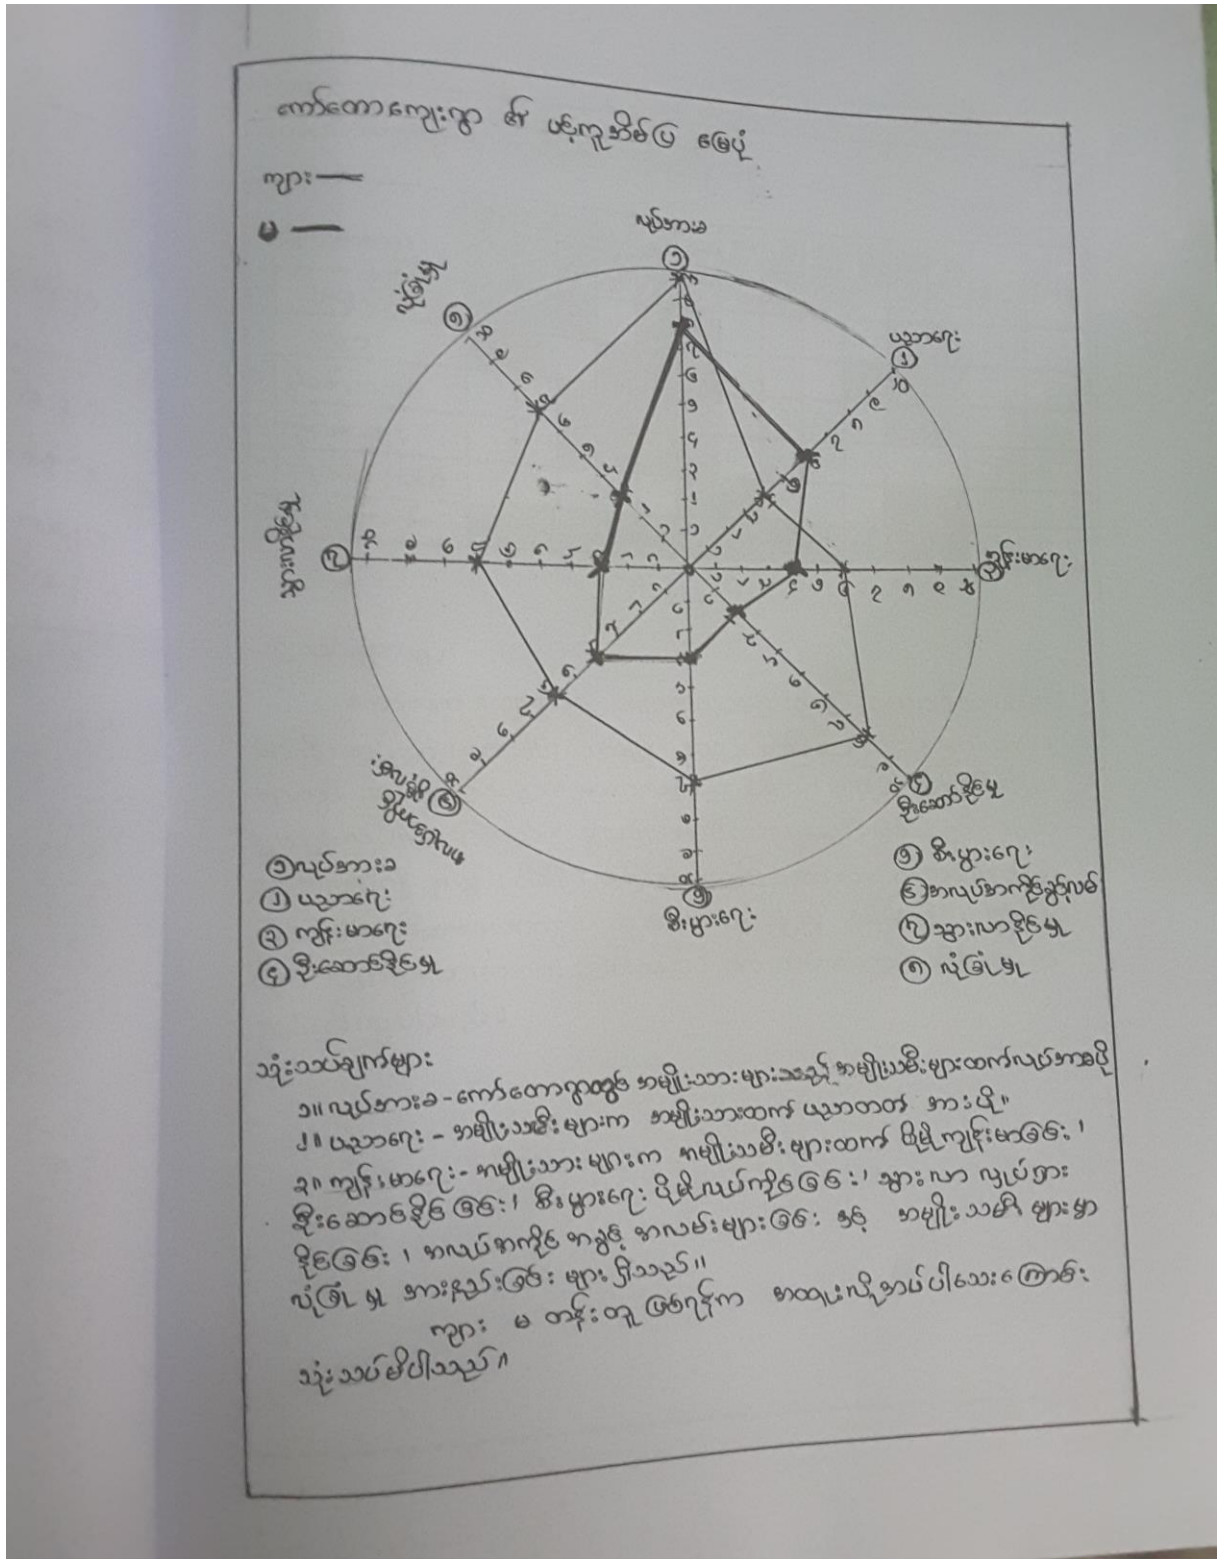 ကော်တောကျေးရွာ ၏ ပင့်ကူအိမ်ပြ မြေပုံ
ကျား —
မ —
လုပ်အားခ
ပညာရေး
ကျန်းမာရေး
ဦးဆောင်နိုင်မှု
စီးပွားရေး
လုံခြုံမှု
① လုပ်အားခ
② ပညာရေး
③ ကျန်းမာရေး
④ ဦးဆောင်နိုင်မှု
⑤ စီးပွားရေး
⑥ အလုပ်အကိုင်ခွင့်လမ်း
⑦ သွားလာနိုင်မှု
⑧ လုံခြုံမှု
သုံးသပ်ချက်များ
၁။ လုပ်အားခ - ကော်တောရွာတွင် အမျိုးသားများသည် အမျိုးသမီးများထက်လုပ်အားခပို
၂။ ပညာရေး - အမျိုးသမီးများက အမျိုးသားထက် ပညာတတ် အားပို။
၃။ ကျန်းမာရေး - အမျိုးသားများက အမျိုးသမီးများထက် ပိုမိုကျန်းမာခြင်း၊
ဦးဆောင်နိုင်ခြင်း၊ စီးပွားရေး ပိုမိုလုပ်ကိုင်ခြင်း၊ သွားလာ လှုပ်ရှား
နိုင်ခြင်း၊ အလုပ်အကိုင် အခွင့် အလမ်းများခြင်း နှင့် အမျိုးသမီး များမှာ
လုံခြုံမှု အားနည်းခြင်း များ ရှိသည်။
ကျား မ တန်းတူ ဖြစ်ရန်က အထူးလိုအပ်ပါသေးကြောင်း
သုံးသပ်မိပါသည်။